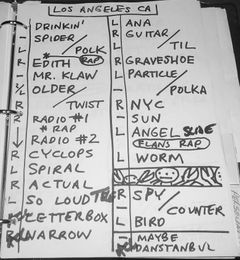 LOS ANGELES CA
– DRINKIN'
L SPIDER/
POLK
R EDITH RAP
– MR. KLAW
L OLDER/
TWIST
R RADIO #1
* RAP
RADIO #2
R CYCLOPS
L SPIRAL
R ACTUAL
L SO LOUD
LETTERBOX
NARROW
L ANA
R GUITAR/
TIL
R GRAVESHOE
L PARTICLE/
POLKA
R NYC
– SUN
L ANGEL
FLANS RAP
L WORM
R SPY/
COUNTER
L BIRD
– MAYBE
DANSTANBUL